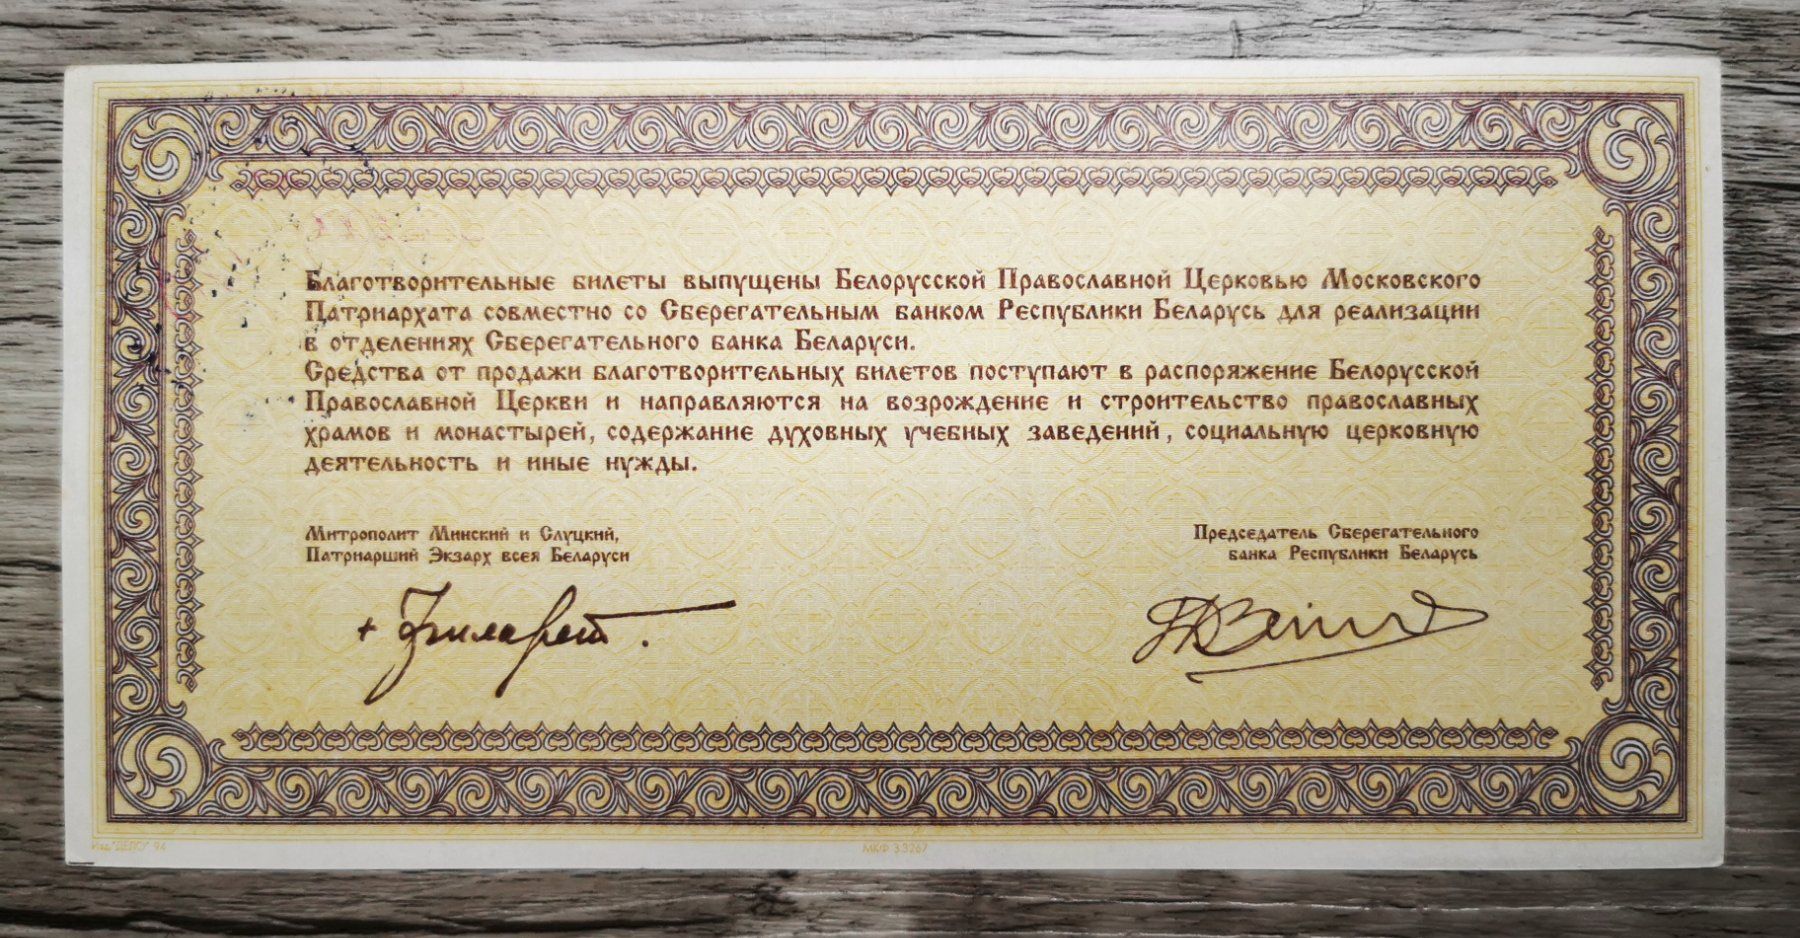 Благотворительные билеты выпущены Белорусской Православной Церковью Московского
Патриархата совместно со Сберегательным банком Республики Беларусь для реализации
в отделениях Сберегательного банка Беларуси.
Средства от продажи благотворительных билетов поступают в распоряжение Белорусской
Православной Церкви и направляются на возрождение и строительство православных
храмов и монастырей, содержание духовных учебных заведений, социальную церковную
деятельность и иные нужды.
Митрополит Минский и Слуцкий,
Патриарший Экзарх всея Беларуси
Председатель Сберегательного
банка Республики Беларусь
+ Филарет.
Изд. "ДЕЛСУ" 94
МКФ З.3267